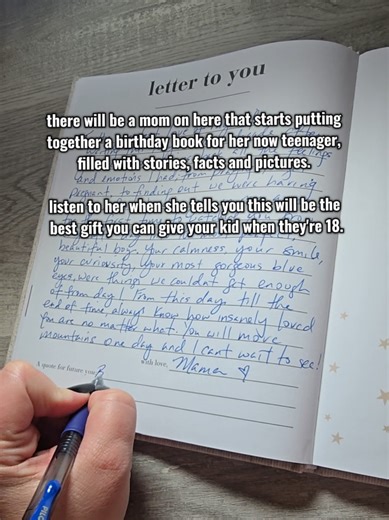 letter to you
there will be a mom on here that starts putting
together a birthday book for her now teenager,
filled with stories, facts and pictures.
and emotions I had, from
pregnant, to finding out we were having
listen to her when she tells you this will be the
best gift you can give your kid when they're 18.
beautiful boy. Your calmness, your smile,
your curiosity, your most gorgeous blue
eyes, were things we couldn't get enough
of from day 1. From this day, till the
end of time, always know how insanely loved
you are no matter what. You will move
mountains one day and I can't wait to see!
with love, Mama
A quote for future you